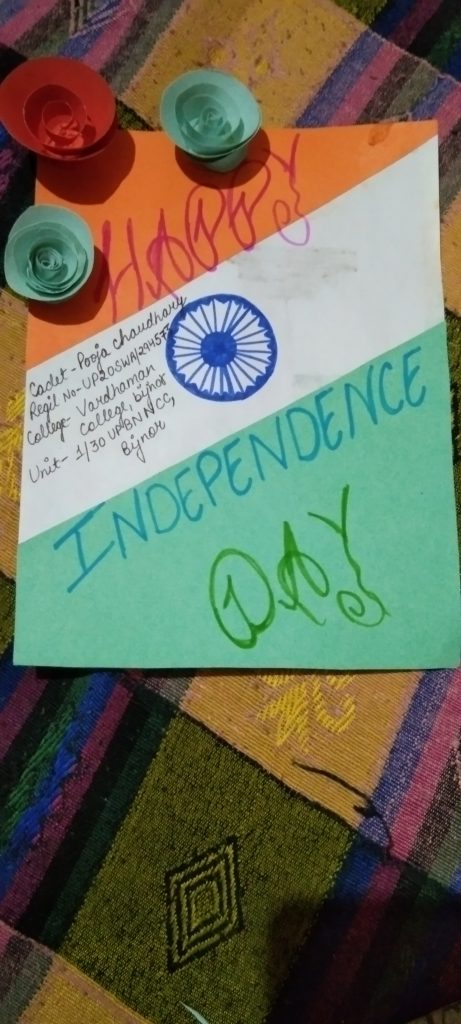 HAPPY
Cadet - Pooja chaudhary
Regil No - UP20SWA/294572
College - Vardhaman
College, bijnor
Unit - 1/30 UP BN NCC,
Bijnor
INDEPENDENCE
DAY